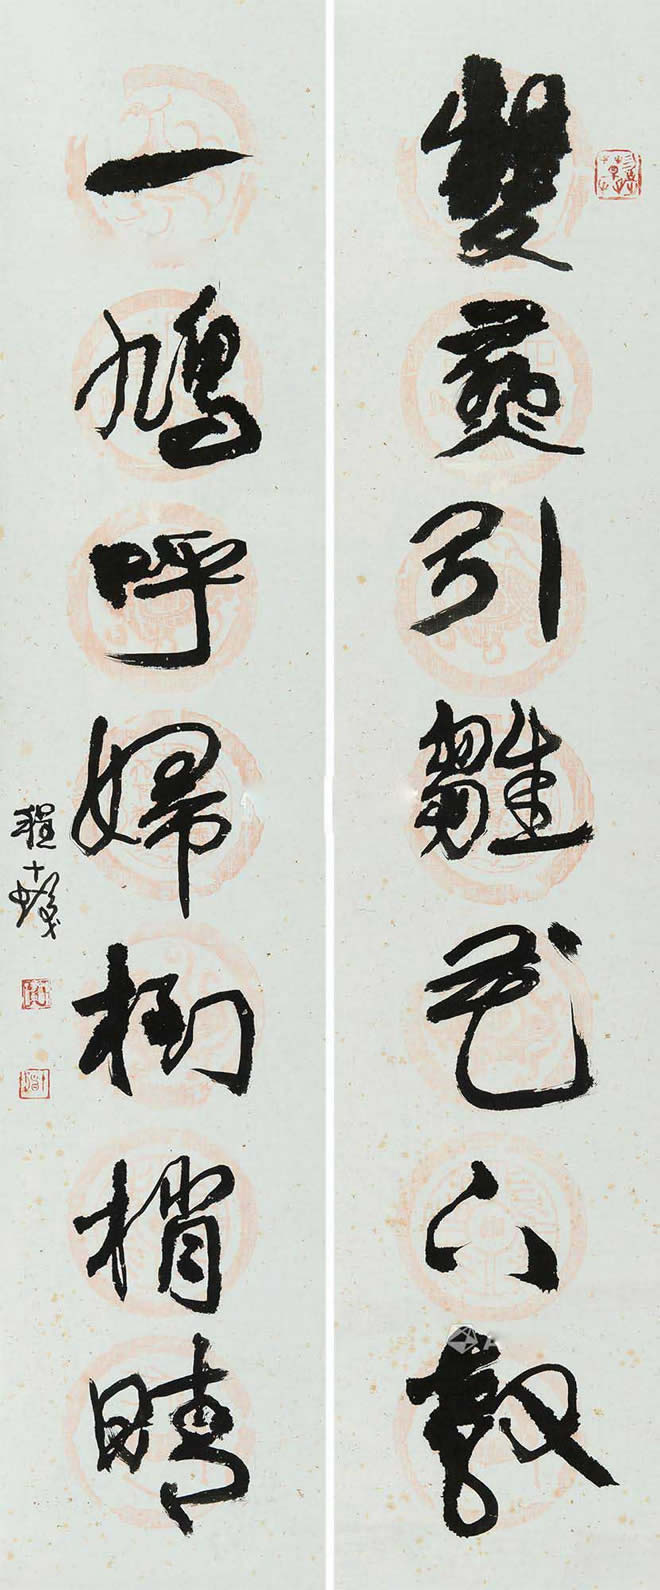 雙燕引雛花下教
一鳩呼婦樹梢晴
程十髮